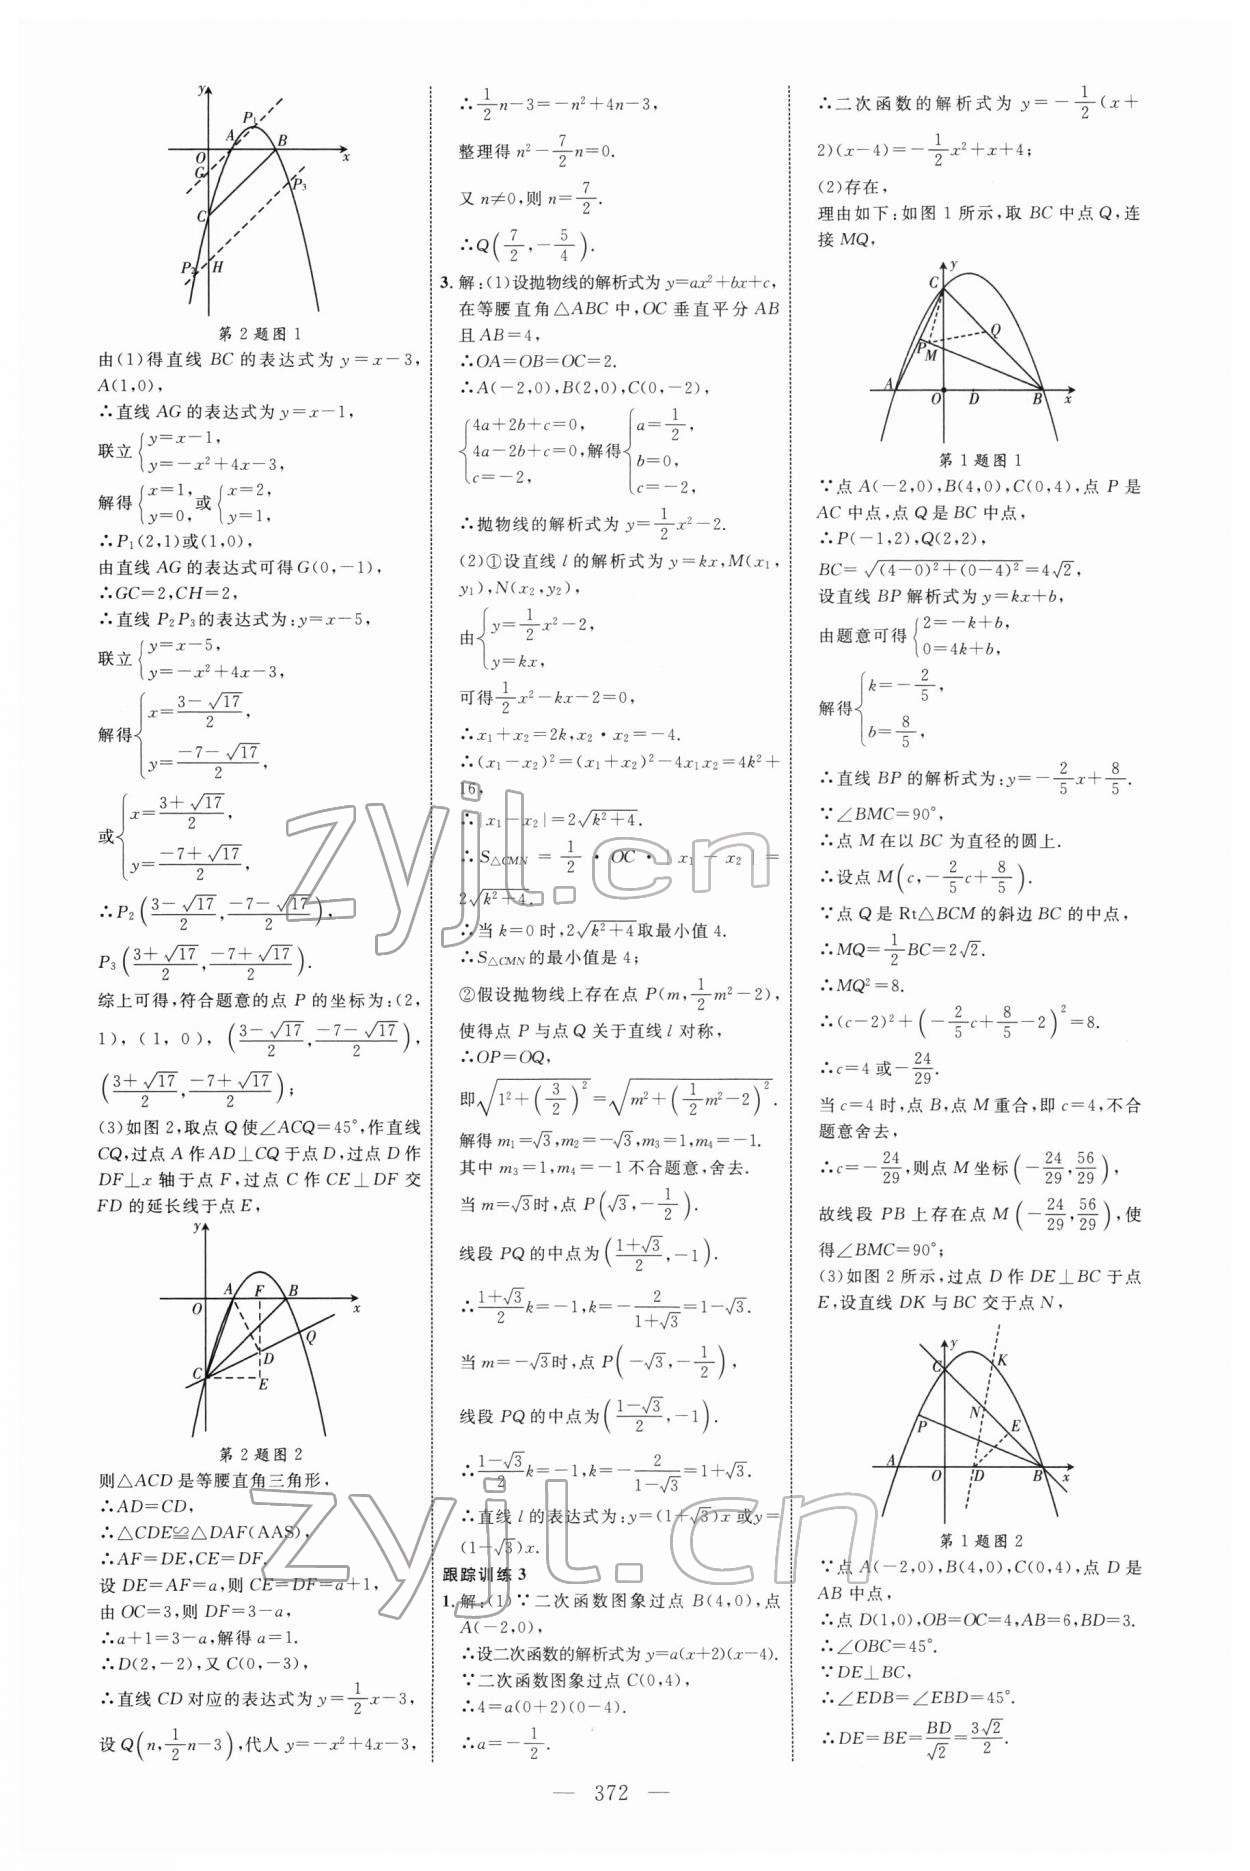 y
P₁
A
B
O
x
G
P₃
C
P₂
H
第2题图1
由(1)得直线BC的表达式为y=x-3,
A(1,0),
∴直线AG的表达式为y=x-1,
联立{y=x-1, y=-x²+4x-3,
解得{x=1, y=0,或{x=2, y=1,
∴P₁(2,1)或(1,0),
由直线AG的表达式可得G(0,-1),
∴GC=2,CH=2,
∴直线P₂P₃的表达式为:y=x-5,
联立{y=x-5, y=-x²+4x-3,
解得{x=(3-√17)/2, y=(-7-√17)/2,
或{x=(3+√17)/2, y=(-7+√17)/2,
∴P₂((3-√17)/2,(-7-√17)/2),
P₃((3+√17)/2,(-7+√17)/2).
综上可得,符合题意的点P的坐标为:(2,
1),(1,0),((3-√17)/2,(-7-√17)/2),
((3+√17)/2,(-7+√17)/2);
(3)如图2,取点Q使∠ACQ=45°,作直线
CQ,过点A作AD⊥CQ于点D,过点D作
DF⊥x轴于点F,过点C作CE⊥DF交
FD的延长线于点E,
y
A
F
B
O
x
Q
D
C
E
第2题图2
则△ACD是等腰直角三角形,
∴AD=CD,
∴△CDE≌△DAF(AAS),
∴AF=DE,CE=DF.
设DE=AF=a,则CE=DF=a+1,
由OC=3,则DF=3-a,
∴a+1=3-a,解得a=1.
∴D(2,-2),又C(0,-3),
∴直线CD对应的表达式为y=1/2x-3,
设Q(n,1/2n-3),代人y=-x²+4x-3,
∴1/2n-3=-n²+4n-3,
整理得n²-7/2n=0.
又n≠0,则n=7/2.
∴Q(7/2,-5/4).
3.解:(1)设抛物线的解析式为y=ax²+bx+c,
在等腰直角△ABC中,OC垂直平分AB
且AB=4,
∴OA=OB=OC=2.
∴A(-2,0),B(2,0),C(0,-2),
{4a+2b+c=0, 4a-2b+c=0, c=-2,解得{a=1/2, b=0, c=-2,
∴抛物线的解析式为y=1/2x²-2.
(2)①设直线l的解析式为y=kx,M(x₁,
y₁),N(x₂,y₂),
由{y=1/2x²-2, y=kx,
可得1/2x²-kx-2=0,
∴x₁+x₂=2k,x₂·x₂=-4.
∴(x₁-x₂)²=(x₁+x₂)²-4x₁x₂=4k²+
16,
∴|x₁-x₂|=2√(k²+4).
∴S△CMN=1/2·OC·|x₁-x₂|=
2√(k²+4).
∴当k=0时,2√(k²+4)取最小值4.
∴S△CMN的最小值是4;
②假设抛物线上存在点P(m,1/2m²-2),
使得点P与点Q关于直线l对称,
∴OP=OQ,
即√(1²+(3/2)²)=√(m²+(1/2m²-2)²).
解得m₁=√3,m₂=-√3,m₃=1,m₄=-1.
其中m₃=1,m₄=-1不合题意,舍去.
当m=√3时,点P(√3,-1/2).
线段PQ的中点为((1+√3)/2,-1).
∴(1+√3)/2k=-1,k=-2/(1+√3)=1-√3.
当m=-√3时,点P(-√3,-1/2),
线段PQ的中点为((1-√3)/2,-1).
∴(1-√3)/2k=-1,k=-2/(1-√3)=1+√3.
∴直线l的表达式为:y=(1+√3)x或y=
(1-√3)x.
跟踪训练3
1.解:(1)∵二次函数图象过点B(4,0),点
A(-2,0),
∴设二次函数的解析式为y=a(x+2)(x-4).
∵二次函数图象过点C(0,4),
∴4=a(0+2)(0-4).
∴a=-1/2.
∴二次函数的解析式为y=-1/2(x+
2)(x-4)=-1/2x²+x+4;
(2)存在,
理由如下:如图1所示,取BC中点Q,连
接MQ,
y
C
Q
P
M
A
O
D
B
x
第1题图1
∵点A(-2,0),B(4,0),C(0,4),点P是
AC中点,点Q是BC中点,
∴P(-1,2),Q(2,2),
BC=√((4-0)²+(0-4)²)=4√2,
设直线BP解析式为y=kx+b,
由题意可得{2=-k+b, 0=4k+b,
解得{k=-2/5, b=8/5,
∴直线BP的解析式为:y=-2/5x+8/5.
∵∠BMC=90°,
∴点M在以BC为直径的圆上.
∴设点M(c,-2/5c+8/5).
∵点Q是Rt△BCM的斜边BC的中点,
∴MQ=1/2BC=2√2.
∴MQ²=8.
∴(c-2)²+(-2/5c+8/5-2)²=8.
∴c=4或-24/29.
当c=4时,点B,点M重合,即c=4,不合
题意舍去,
∴c=-24/29,则点M坐标(-24/29,56/29),
故线段PB上存在点M(-24/29,56/29),使
得∠BMC=90°;
(3)如图2所示,过点D作DE⊥BC于点
E,设直线DK与BC交于点N,
y
C
K
P
N
E
A
O
D
B
x
第1题图2
∵点A(-2,0),B(4,0),C(0,4),点D是
AB中点,
∴点D(1,0),OB=OC=4,AB=6,BD=3.
∴∠OBC=45°.
∵DE⊥BC,
∴∠EDB=∠EBD=45°.
∴DE=BE=BD/√2=3√2/2.
— 372 —
zyjl.cn
zyjl.cn